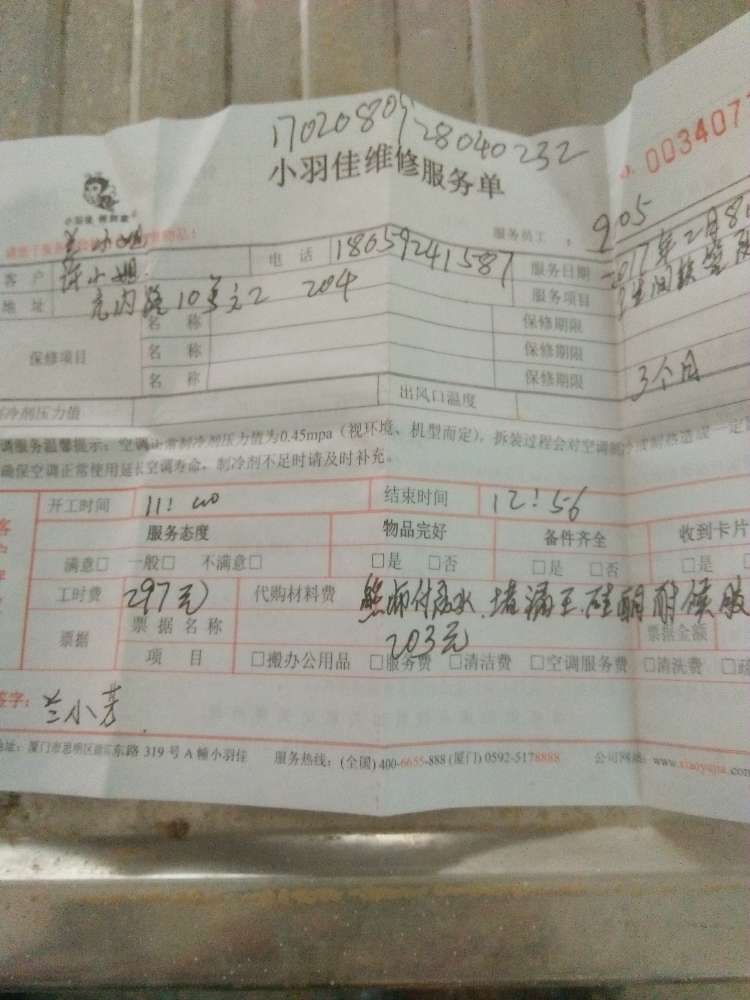 1702080928040232
小羽佳维修服务单
003407
服务员工: 905
客户 兰小姐 电话 18659241587 服务日期 2017年2月8
地址 10 2 204 服务项目 卫生间
保修项目 名称 保修期限
名称 保修期限
名称 保修期限 3个月
制冷剂压力值 出风口温度
调服务温馨提示:空调正常制冷剂压力值为0.45mpa(视环境、机型而定),拆装过程会对空调制冷或制热造成一定
确保空调正常使用延长空调寿命,制冷剂不足时请及时补充。
开工时间 11:40 结束时间 12:56
服务态度 物品完好 备件齐全 收到卡片
满意□ 一般□ 不满意□ □是 □否 □是 □否 □是
工时费 297元 代购材料费 堵漏王.硅酮耐候胶
203元
票据 票据名称 票据金额
项目 □搬办公用品 □服务费 □清洁费 □空调服务费 □清洗费
签字: 兰小芳
地址:厦门市思明区 东路319号A幢小羽佳 服务热线:(全国)400-6655-888(厦门)0592-5178888 公司网址:www.xiaoyujia.com